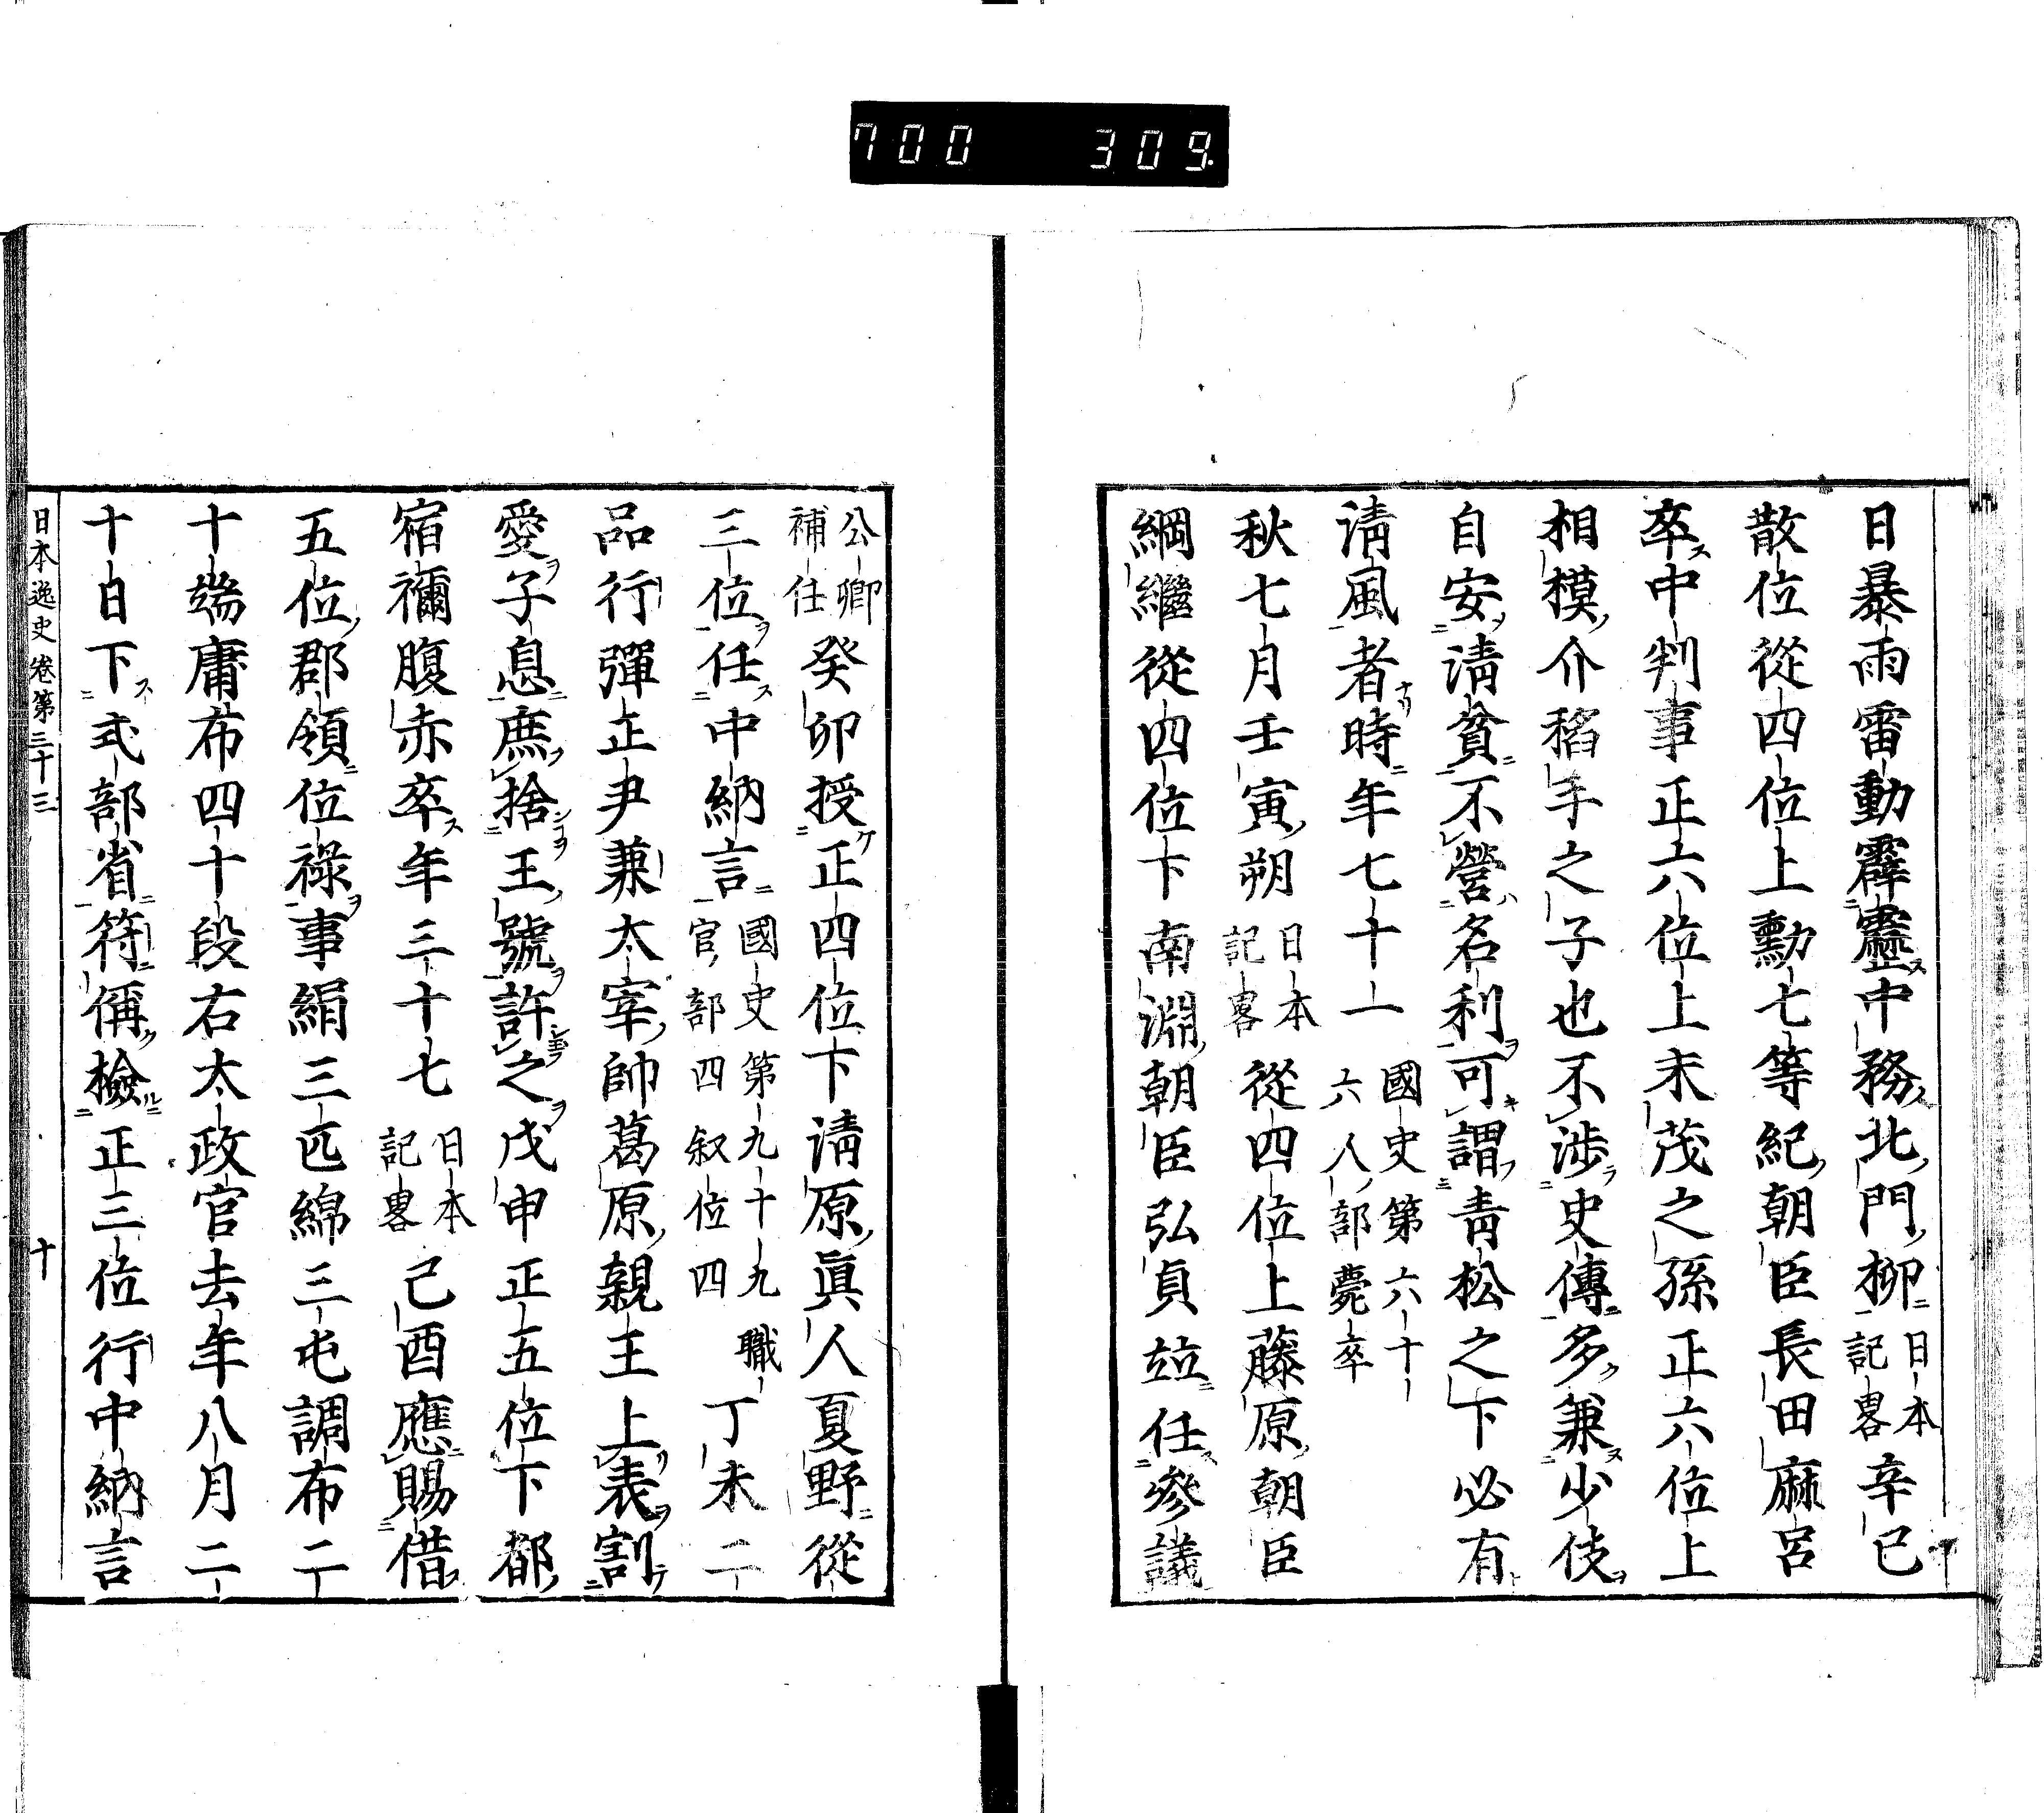 700 309
日暴雨雷動霹靂中務北門柳日本記畧辛巳
散位從四位上勳七等紀朝臣長田麻呂
卒中判事正六位上末茂之孫正六位上
相模介稻手之子也不渉史傳多兼少伎
自安清貧不營名利可謂青松之下必有
清風者時年七十一國史第六十六人部薨卒
秋七月壬寅朔日本記畧從四位上藤原朝臣
綱繼從四位下南淵朝臣弘貞竝任參議
公卿補任癸卯授正四位下清原眞人夏野從
三位任中納言國史第九十九職官部四叙位四丁未二
品行彈正尹兼太宰帥葛原親王上表割
愛子息庶捨王號許之戊申正五位下都
宿禰腹赤卒年三十七日本記畧己酉應賜借
五位郡領位祿事絹三匹綿三屯調布二
十端庸布四十段右太政官去年八月二
十日下式部省符偁檢正三位行中納言
日本逸史卷第三十三 十